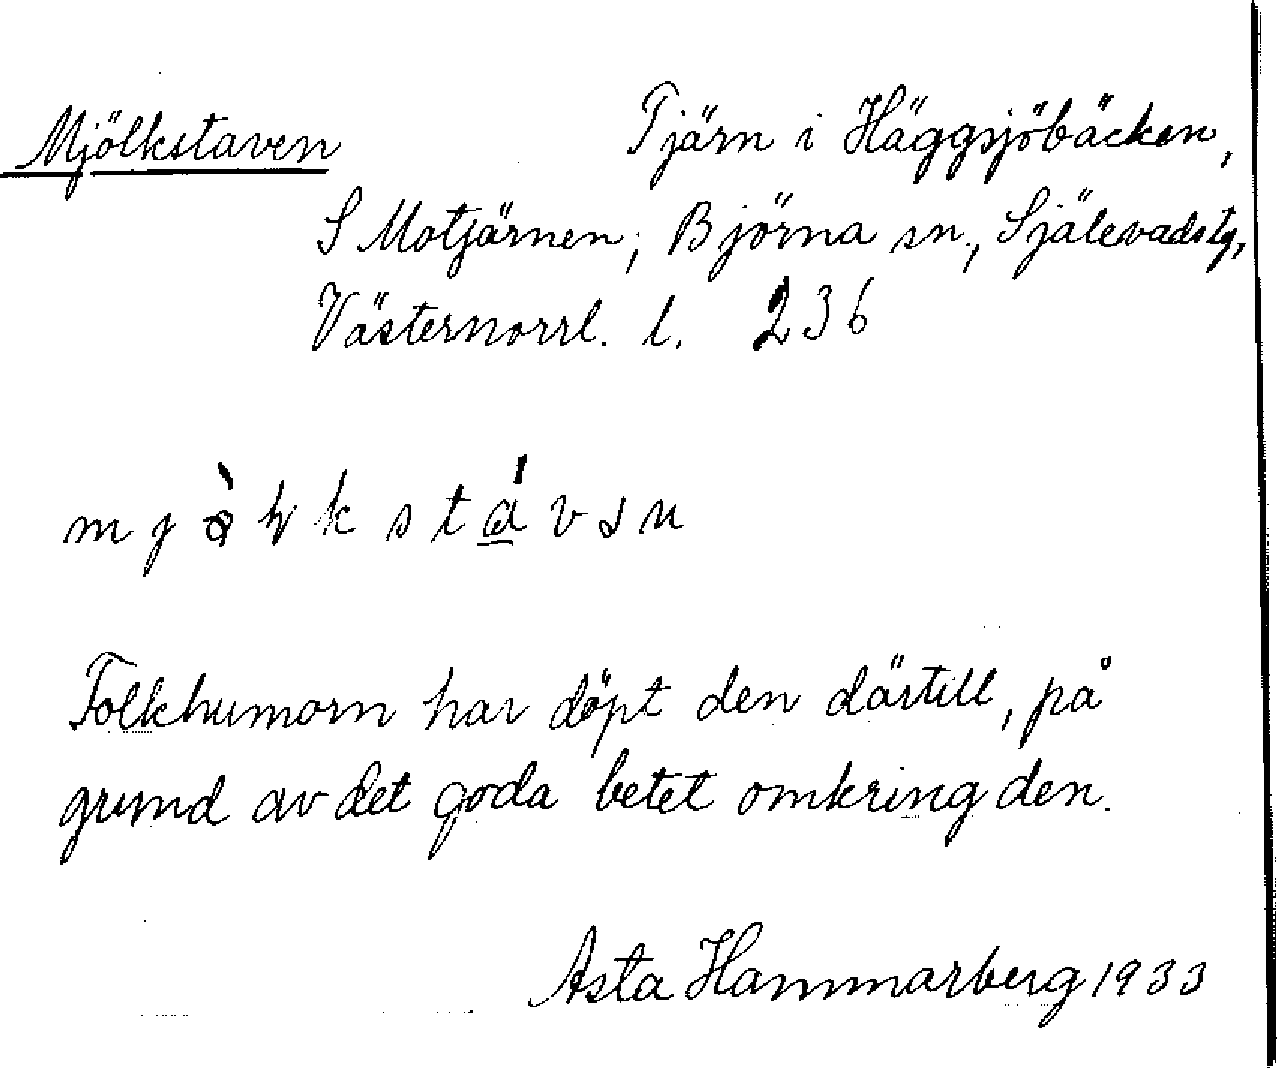 Mjölkstaven Tjärn i Häggsjöbäcken,
S Motjärnen, Björna sn, Själevadstg,
Västernorrl. l. 236
Folkhumorn har döpt den därtill, på
grund av det goda betet omkring den.
Asta Hammarberg 1933